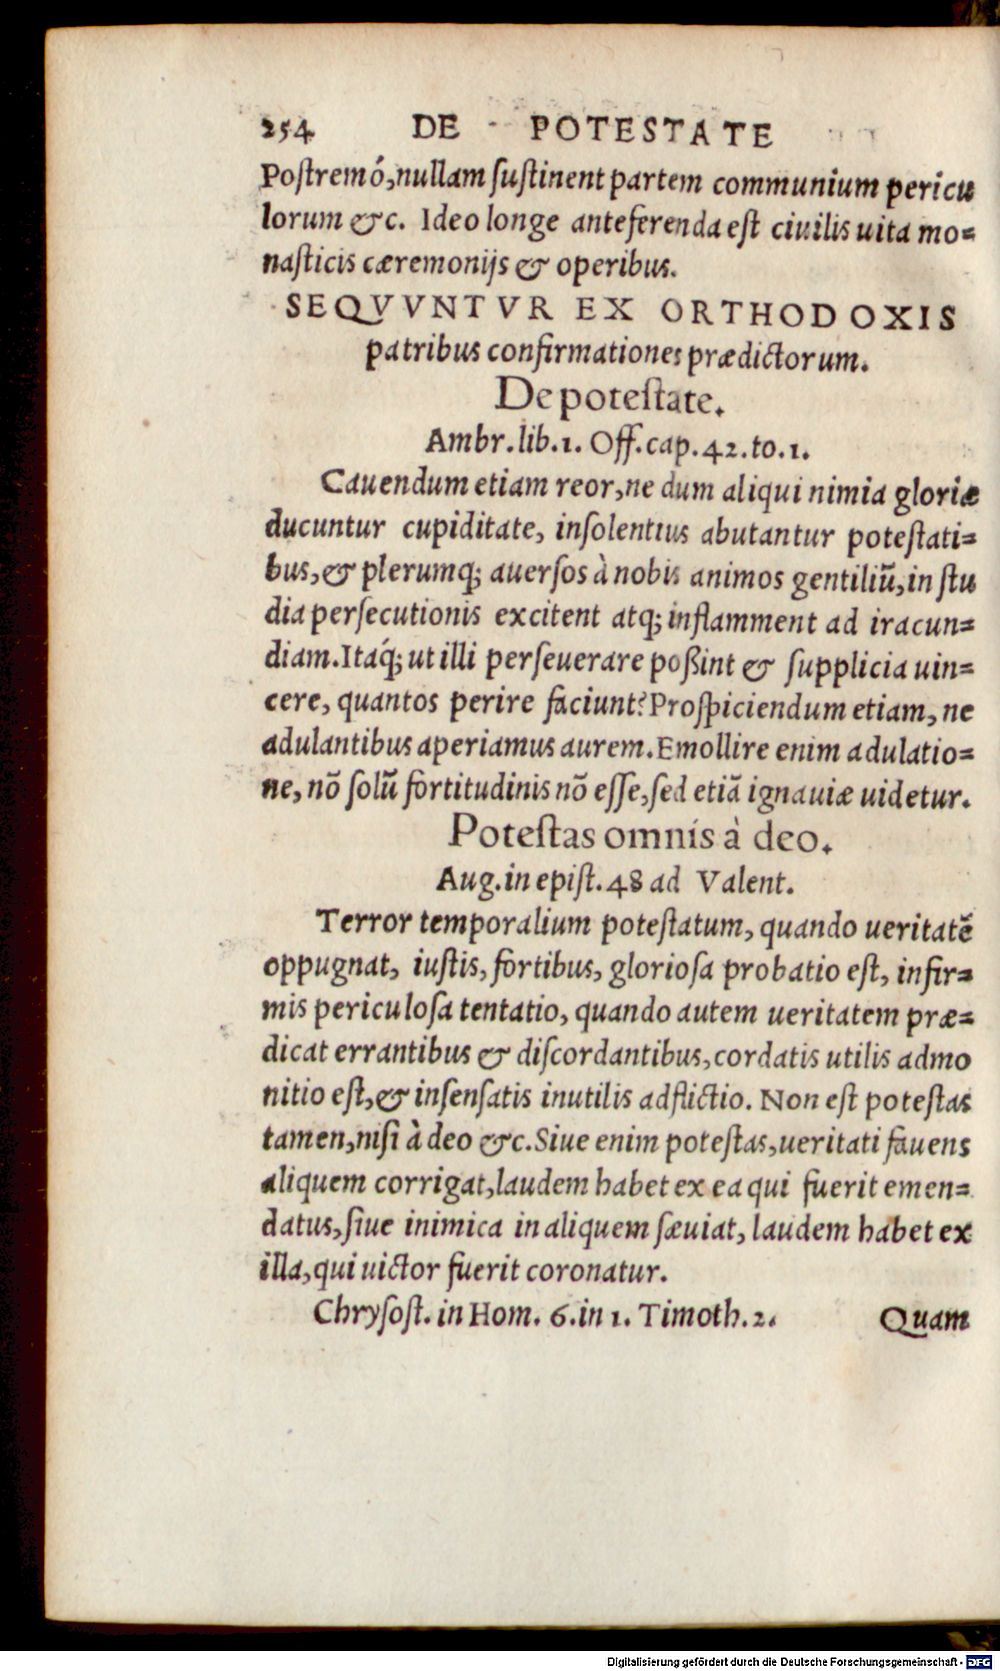 254 DE POTESTATE
Postremó, nullam sustinent partem communium pericu
lorum &c. Ideo longe anteferenda est ciuilis uita mo=
nasticis cæremonijs & operibus.
SEQVVNTVR EX ORTHODOXIS
patribus confirmationes prædictorum.
De potestate.
Ambr. lib. 1. Off. cap. 42. to. 1.
Cauendum etiam reor, ne dum aliqui nimia gloriæ
ducuntur cupiditate, insolentius abutantur potestati=
bus, & plerumq; auersos à nobis animos gentiliũ, in stu
dia persecutionis excitent atq; inflamment ad iracun=
diam. Itaq́; ut illi perseuerare poßint & supplicia uin=
cere, quantos perire faciunt? Prospiciendum etiam, ne
adulantibus aperiamus aurem. Emollire enim adulatio=
ne, nõ solũ fortitudinis nõ esse, sed etiã ignauiæ uidetur.
Potestas omnis à deo.
Aug. in epist. 48 ad Valent.
Terror temporalium potestatum, quando ueritatẽ
oppugnat, iustis, fortibus, gloriosa probatio est, infir=
mis periculosa tentatio, quando autem ueritatem præ=
dicat errantibus & discordantibus, cordatis utilis admo
nitio est, & insensatis inutilis adflictio. Non est potestas
tamen, nisi à deo &c. Siue enim potestas, ueritati fauens
aliquem corrigat, laudem habet ex ea qui fuerit emen=
datus, siue inimica in aliquem sæuiat, laudem habet ex
illa, qui uictor fuerit coronatur.
Chrysost. in Hom. 6. in 1. Timoth. 2. Quam
Digitalisierung gefördert durch die Deutsche Forschungsgemeinschaft - DFG